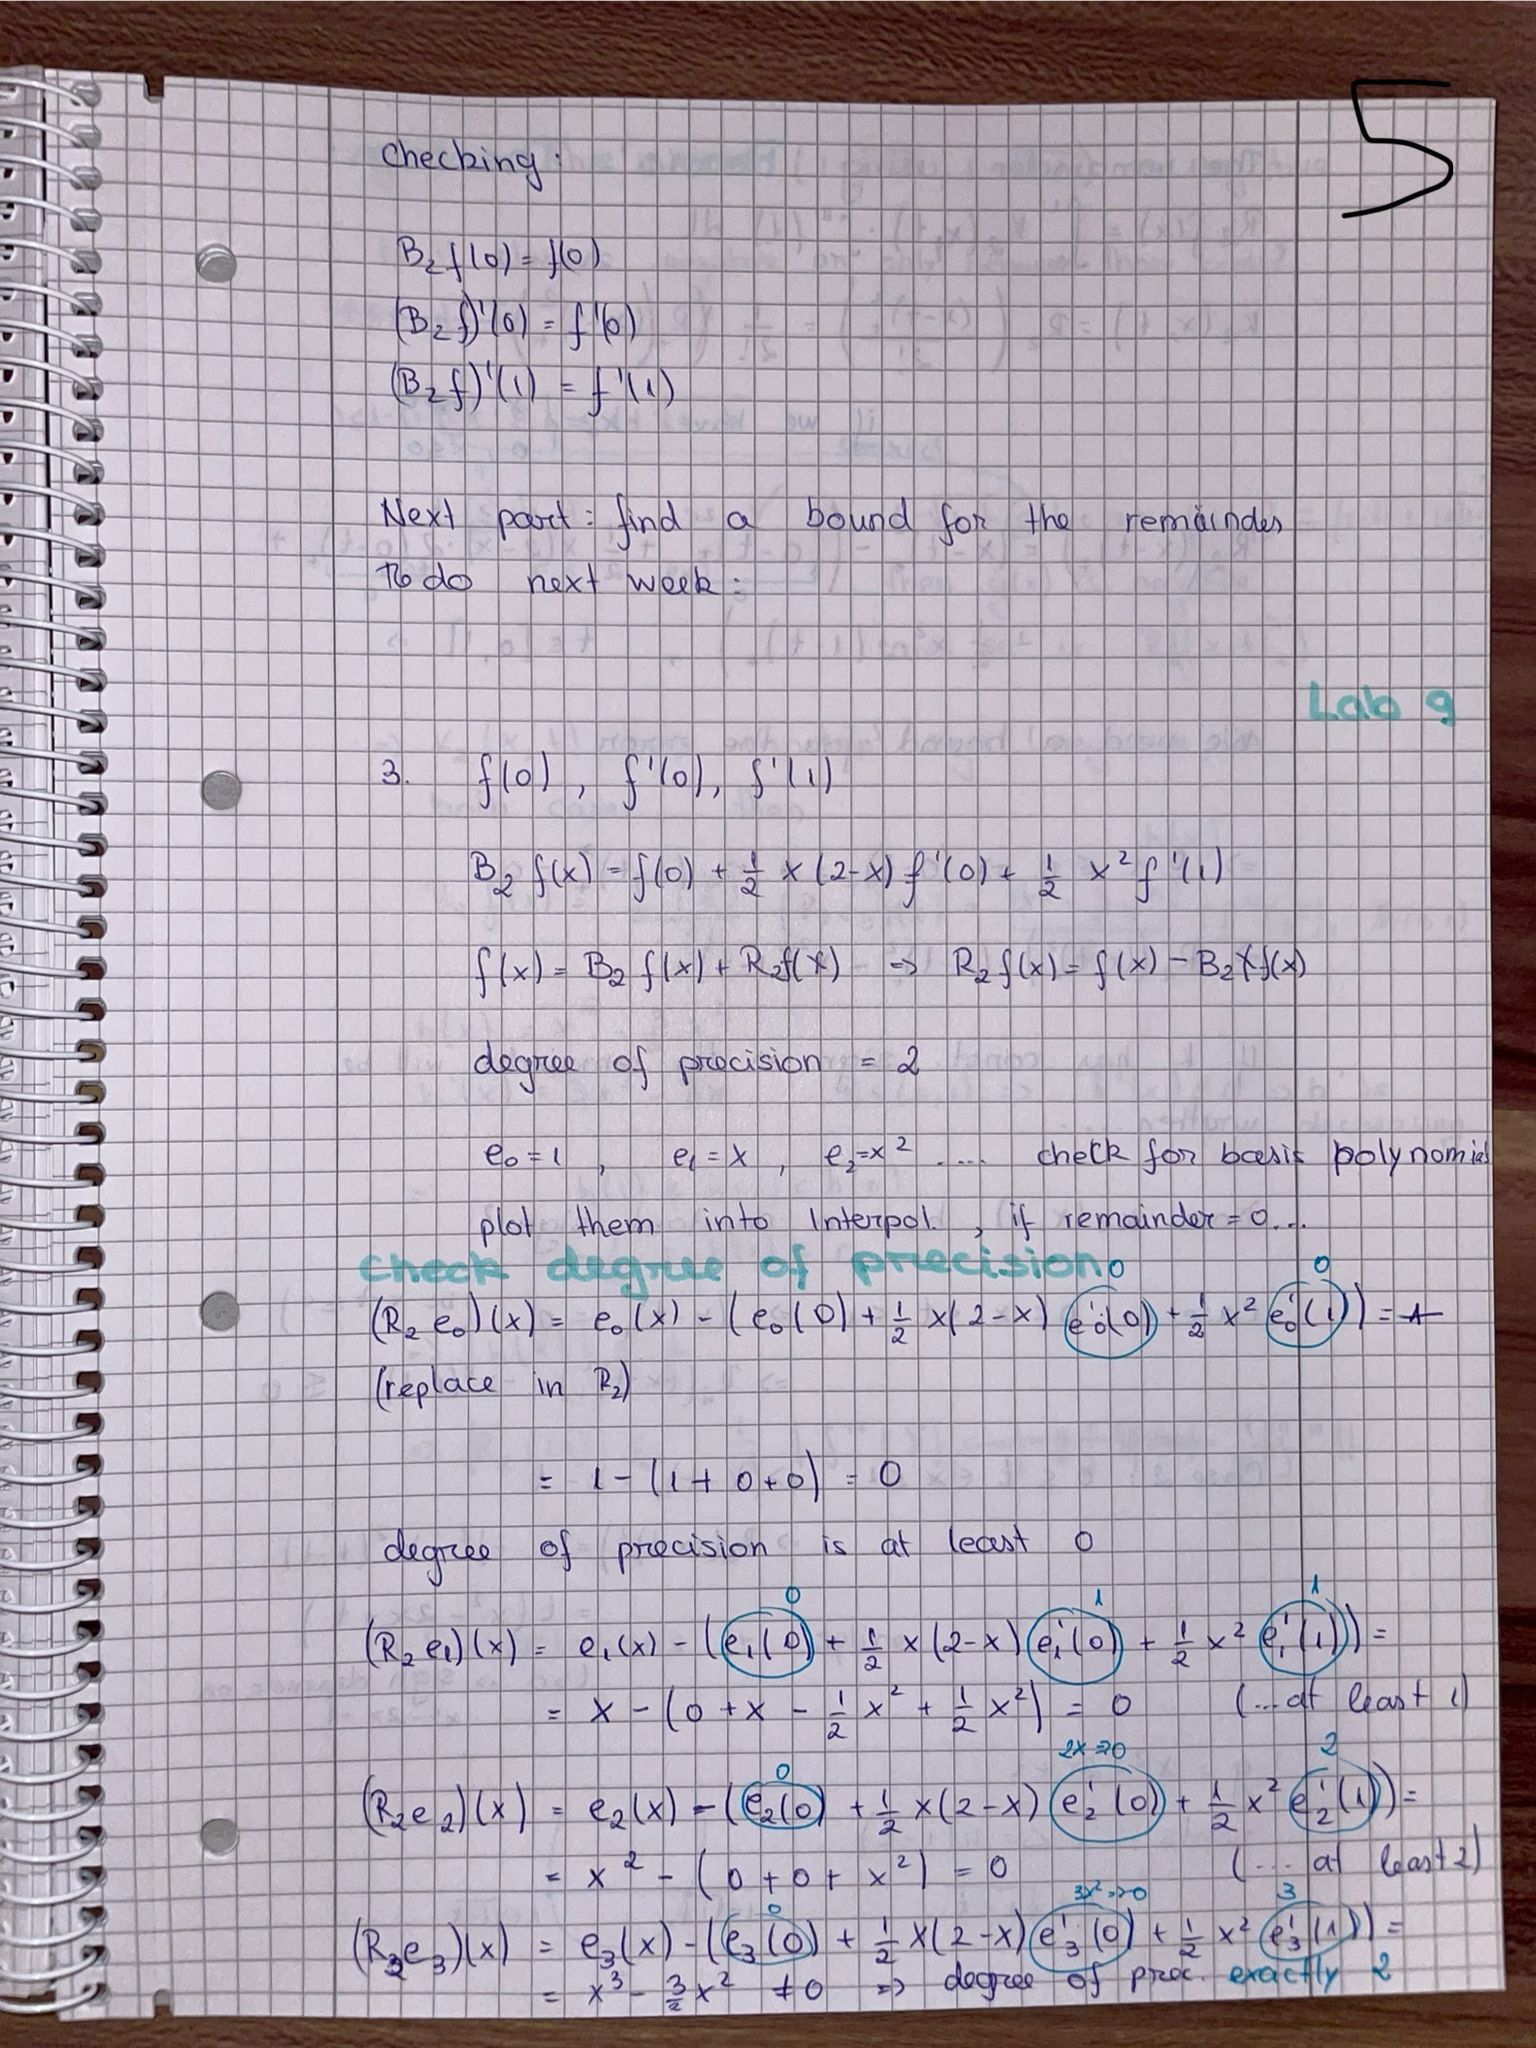 5
checking:
B₂f(0) = f(0)
(B₂f)'(0) = f'(0)
(B₂f)'(1) = f'(1)
Next part: find a bound for the remainder
To do next week:
Lab 9
3. f(0), f'(0), f'(1)
B₂ f(x) = f(0) + 1/2 x(2-x) f'(0) + 1/2 x² f'(1)
f(x) = B₂ f(x) + R₂f(x) => R₂ f(x) = f(x) - B₂ f(x)
degree of precision = 2
e₀ = 1, e₁ = x, e₂ = x² .... check for basis polynomial
plot them into Interpol., if remainder = 0...
check degree of precision
0 0
(R₂ e₀)(x) = e₀(x) - (e₀(0) + 1/2 x(2-x) e₀'(0) + 1/2 x² e₀'(1)) =
(replace in R₂)
= 1 - (1 + 0 + 0) = 0
degree of precision is at least 0
0 1 1
(R₂ e₁)(x) = e₁(x) - (e₁(0) + 1/2 x(2-x) e₁'(0) + 1/2 x² e₁'(1)) =
= x - (0 + x - 1/2 x² + 1/2 x²) = 0 (...at least 1)
0 2x=>0 2
(R₂e₂)(x) = e₂(x) - (e₂(0) + 1/2 x(2-x) e₂'(0) + 1/2 x² e₂'(1)) =
= x² - (0 + 0 + x²) = 0 (... at least 2)
0 3x²=>0 3
(R₂e₃)(x) = e₃(x) - (e₃(0) + 1/2 x(2-x) e₃'(0) + 1/2 x² e₃'(1)) =
= x³ - 3/2 x² ≠ 0 => degree of prec. exactly 2